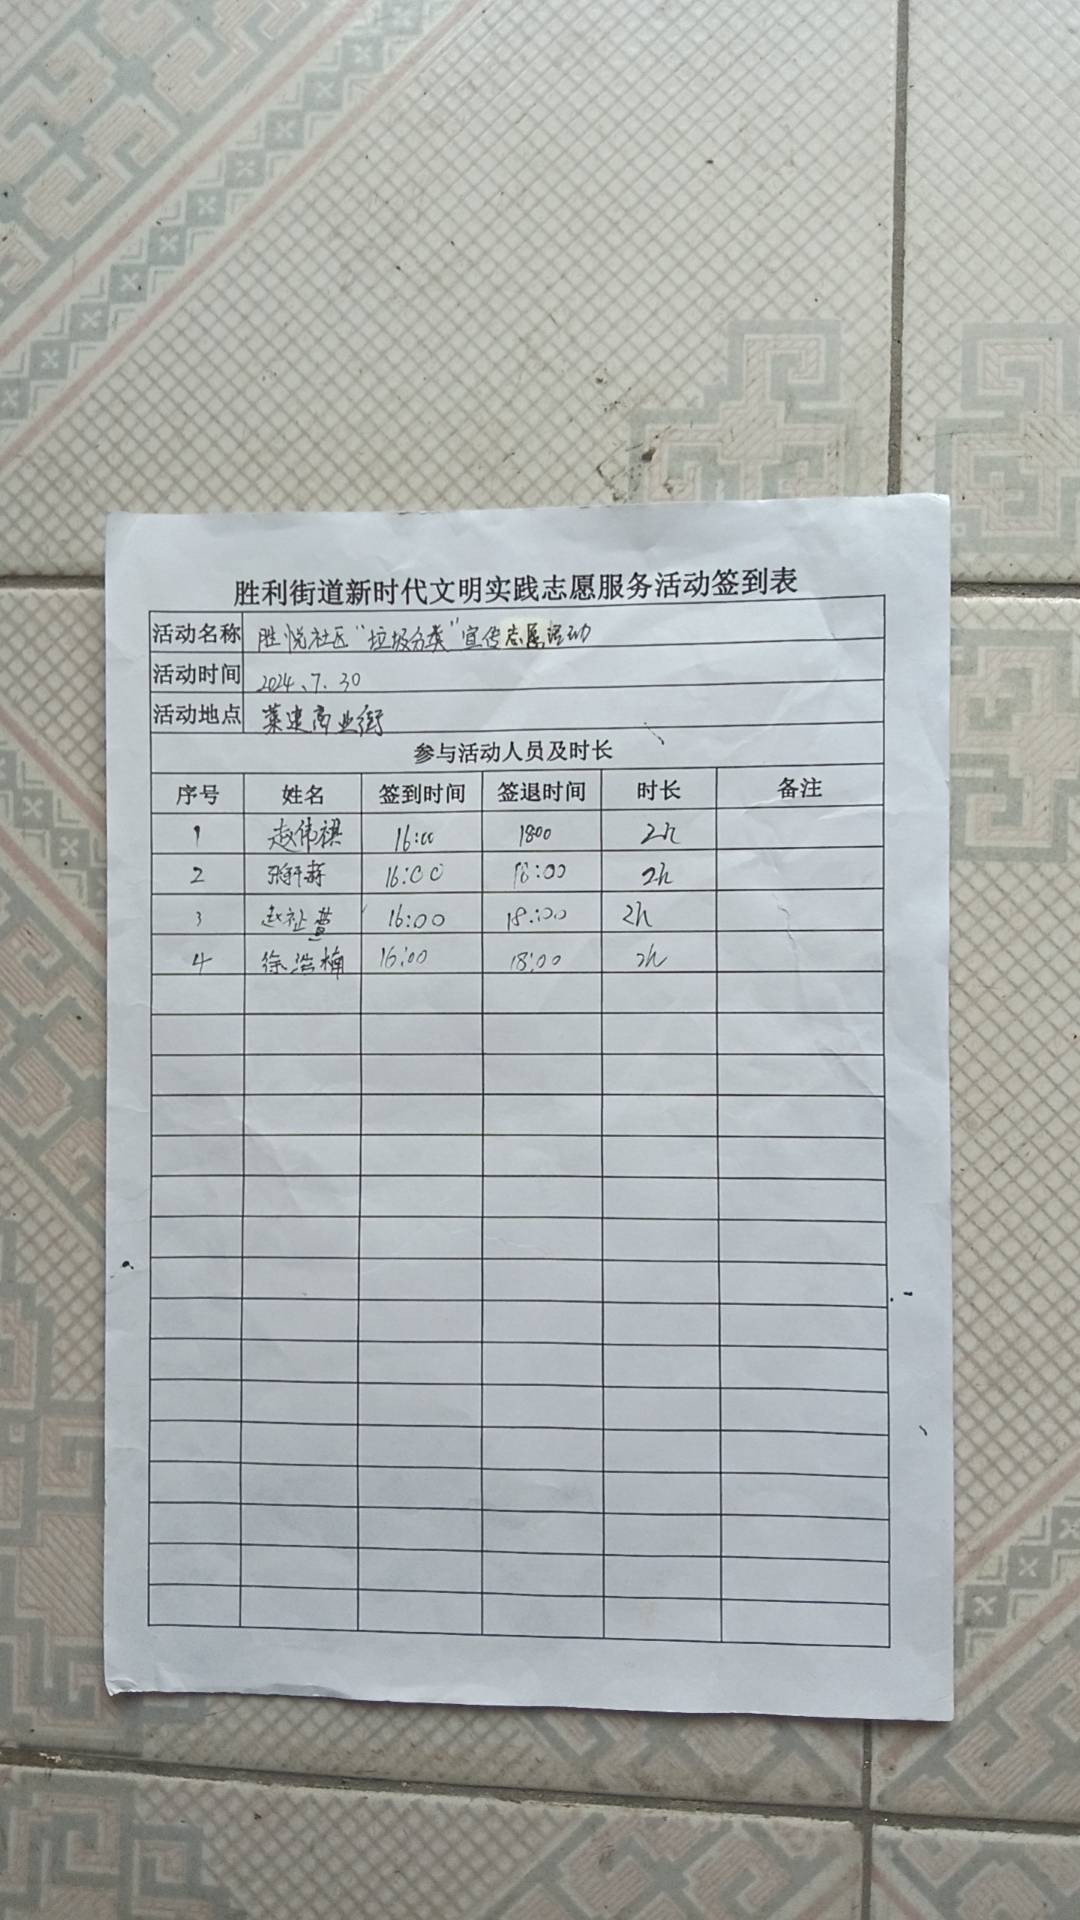 胜利街道新时代文明实践志愿服务活动签到表
活动名称 胜悦社区“垃圾分类”宣传志愿活动
活动时间 2024、7. 30
活动地点 莱建商业街
参与活动人员及时长
序号 姓名 签到时间 签退时间 时长 备注
1 赵伟祺 16:00 1800 2h
2 16:00 18:00 2h
3 赵祉萱 16:00 18:00 2h
4 徐浩楠 16:00 18:00 2h